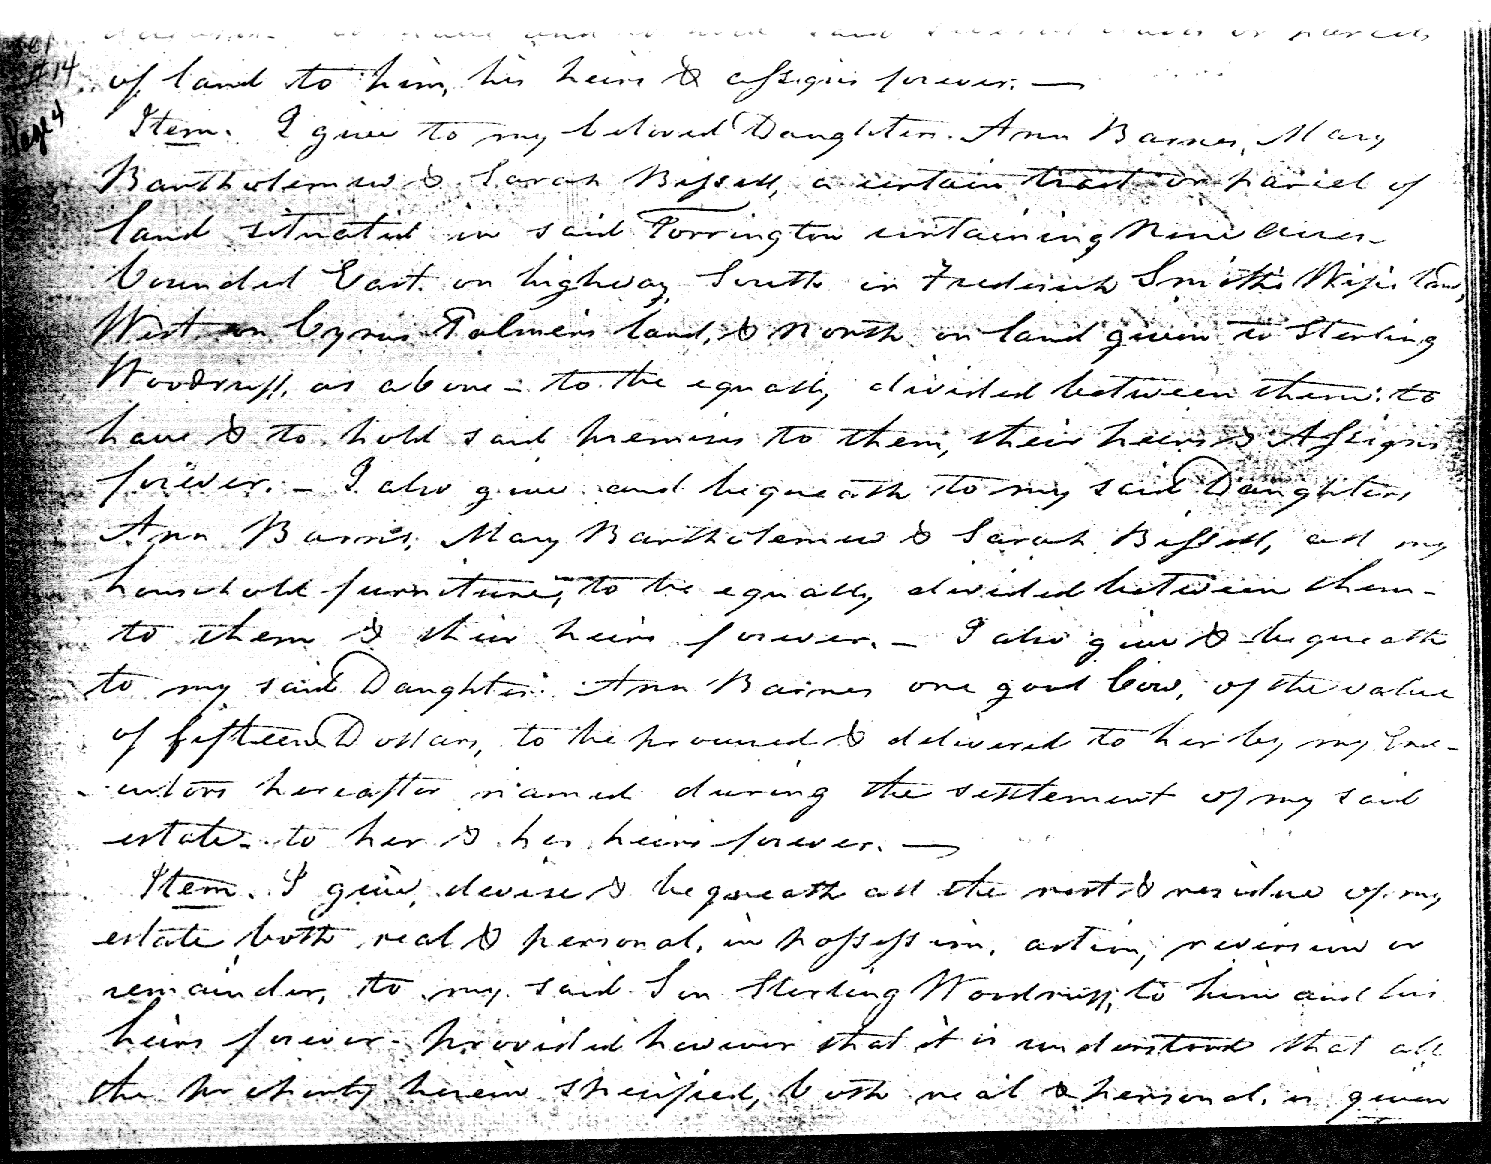 said several tracts or parcels
of land to him, his heirs & assigns forever. —
#14
Page 4
Item. I give to my beloved Daughters. Ann Barnes, Mary
Bartholemew & Sarah Bissell, a certain tract or parcel of
land situated in said Torrington containing nine acres—
bounded East on highway, South on Frederick Smith's Wife's land,
West on Cyrus Palmer's land, & North on land given to Sterling
Woodruff, as above — to be equally divided between them: to
have & to hold said premises to them, their heirs & Assigns
forever. — I also give and bequeath to my said Daughters
Ann Barnes, Mary Bartholemew & Sarah Bissell, all my
household furniture, to be equally divided between them—
to them & their heirs forever. — I also give & bequeath
to my said Daughter Ann Barnes one good Cow, of the value
of fifteen Dollars, to be procured & delivered to her by my Exe-
cutors hereafter named during the settlement of my said
estate— to her & her heirs forever. —
Item. I give, devise & bequeath all the rest & residue of my
estate both real & personal, in possession, action, reversion or
remainder, to my said Son Sterling Woodruff, to him and his
heirs forever— provided however that it is understood that all
the property herein specified, both real & personal, is given